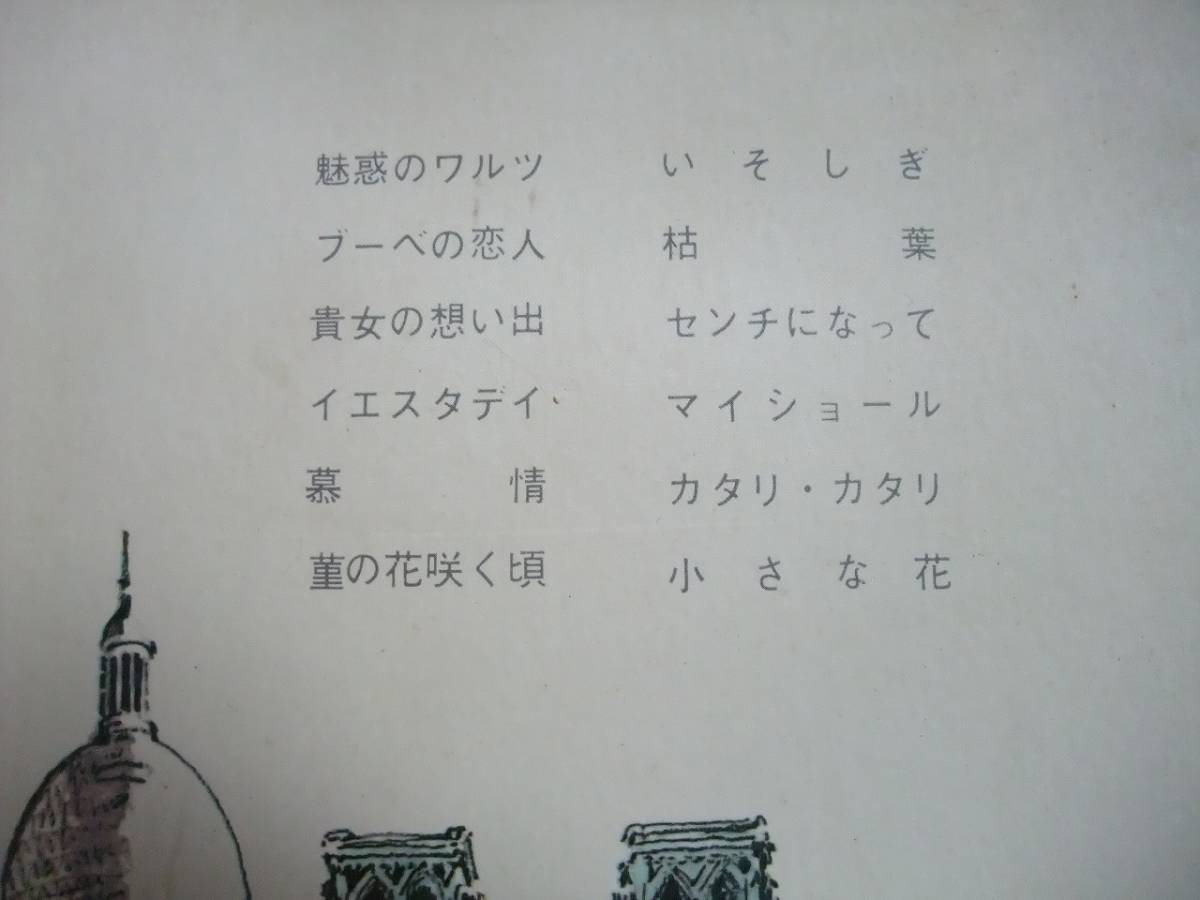 魅惑のワルツ
ブーベの恋人
貴女の想い出
イエスタデイ
慕情
菫の花咲く頃
いそしぎ
枯葉
センチになって
マイショール
カタリ・カタリ
小さな花